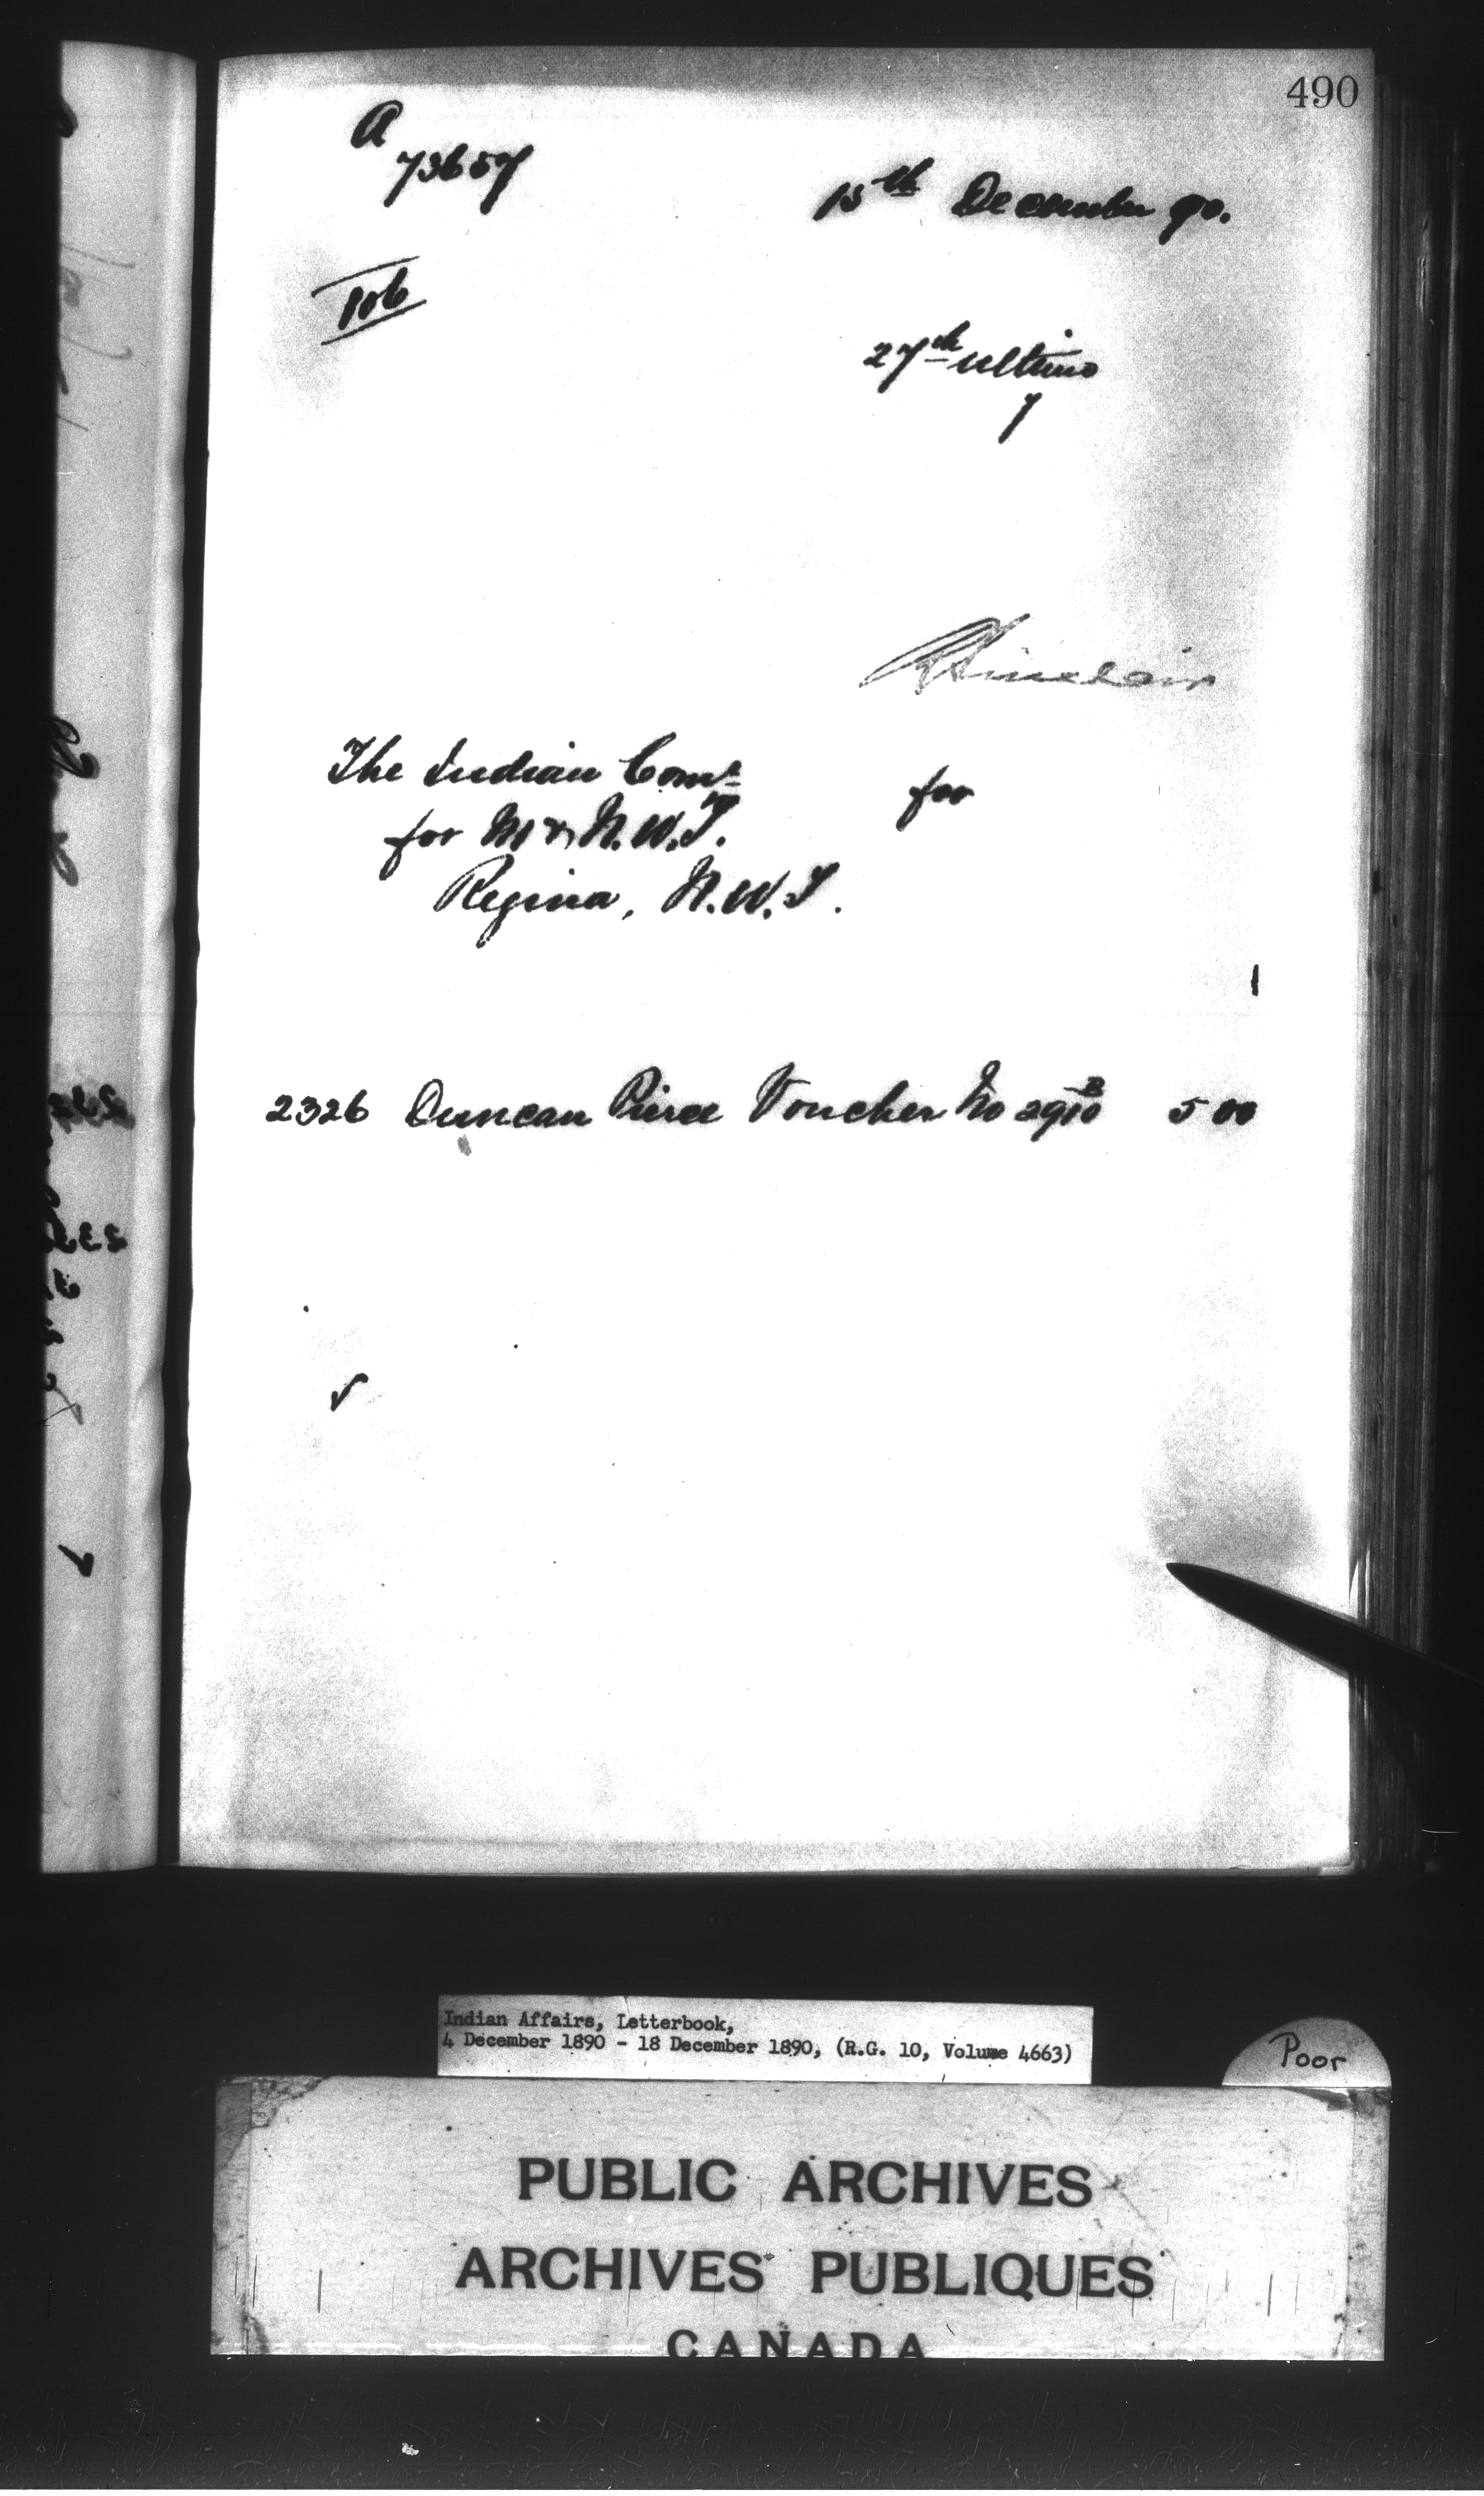 490
A
73657
15th December 90.
106
27th ultimo
7
Sinclair
The Indian Comr
for
for M & N.W.T.
Regina, N.W.T.
2326 Duncan Pierce Voucher No 2910 B 5 00
Indian Affairs, Letterbook,
4 December 1890 - 18 December 1890, (R.G. 10, Volume 4663)
Poor
PUBLIC ARCHIVES
ARCHIVES PUBLIQUES
CANADA